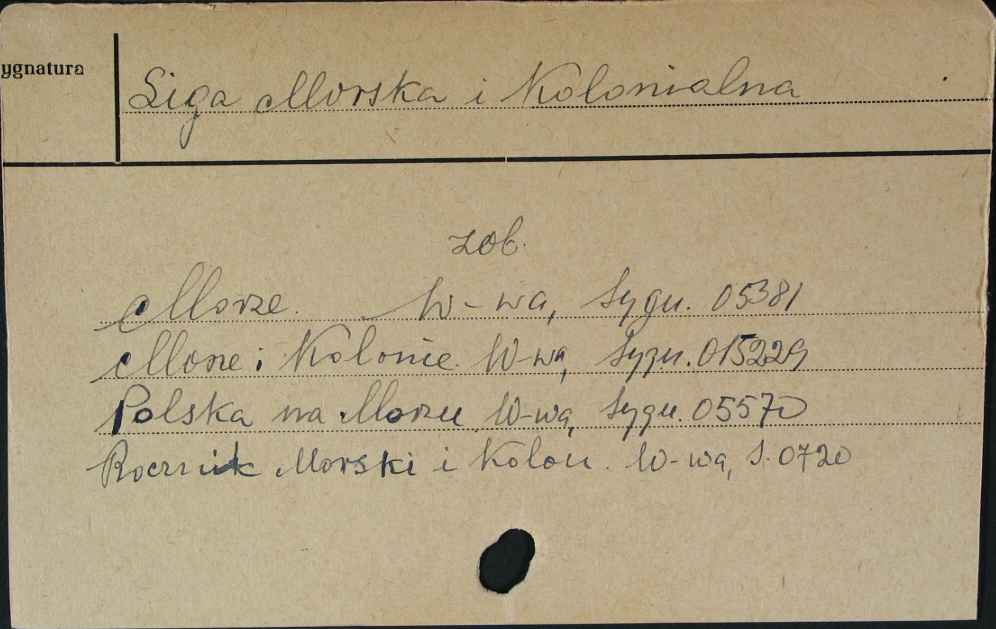 ygnatura
Liga Morska i Kolonialna
zob.
Morze. W-wa, Sygn. 05381
Morze i Kolonie. W-wa, Sygn. 015229
Polska na Morzu, W-wa, Sygn. 05570
Rocznik Morski i Kolon. W-wa, S. 0720